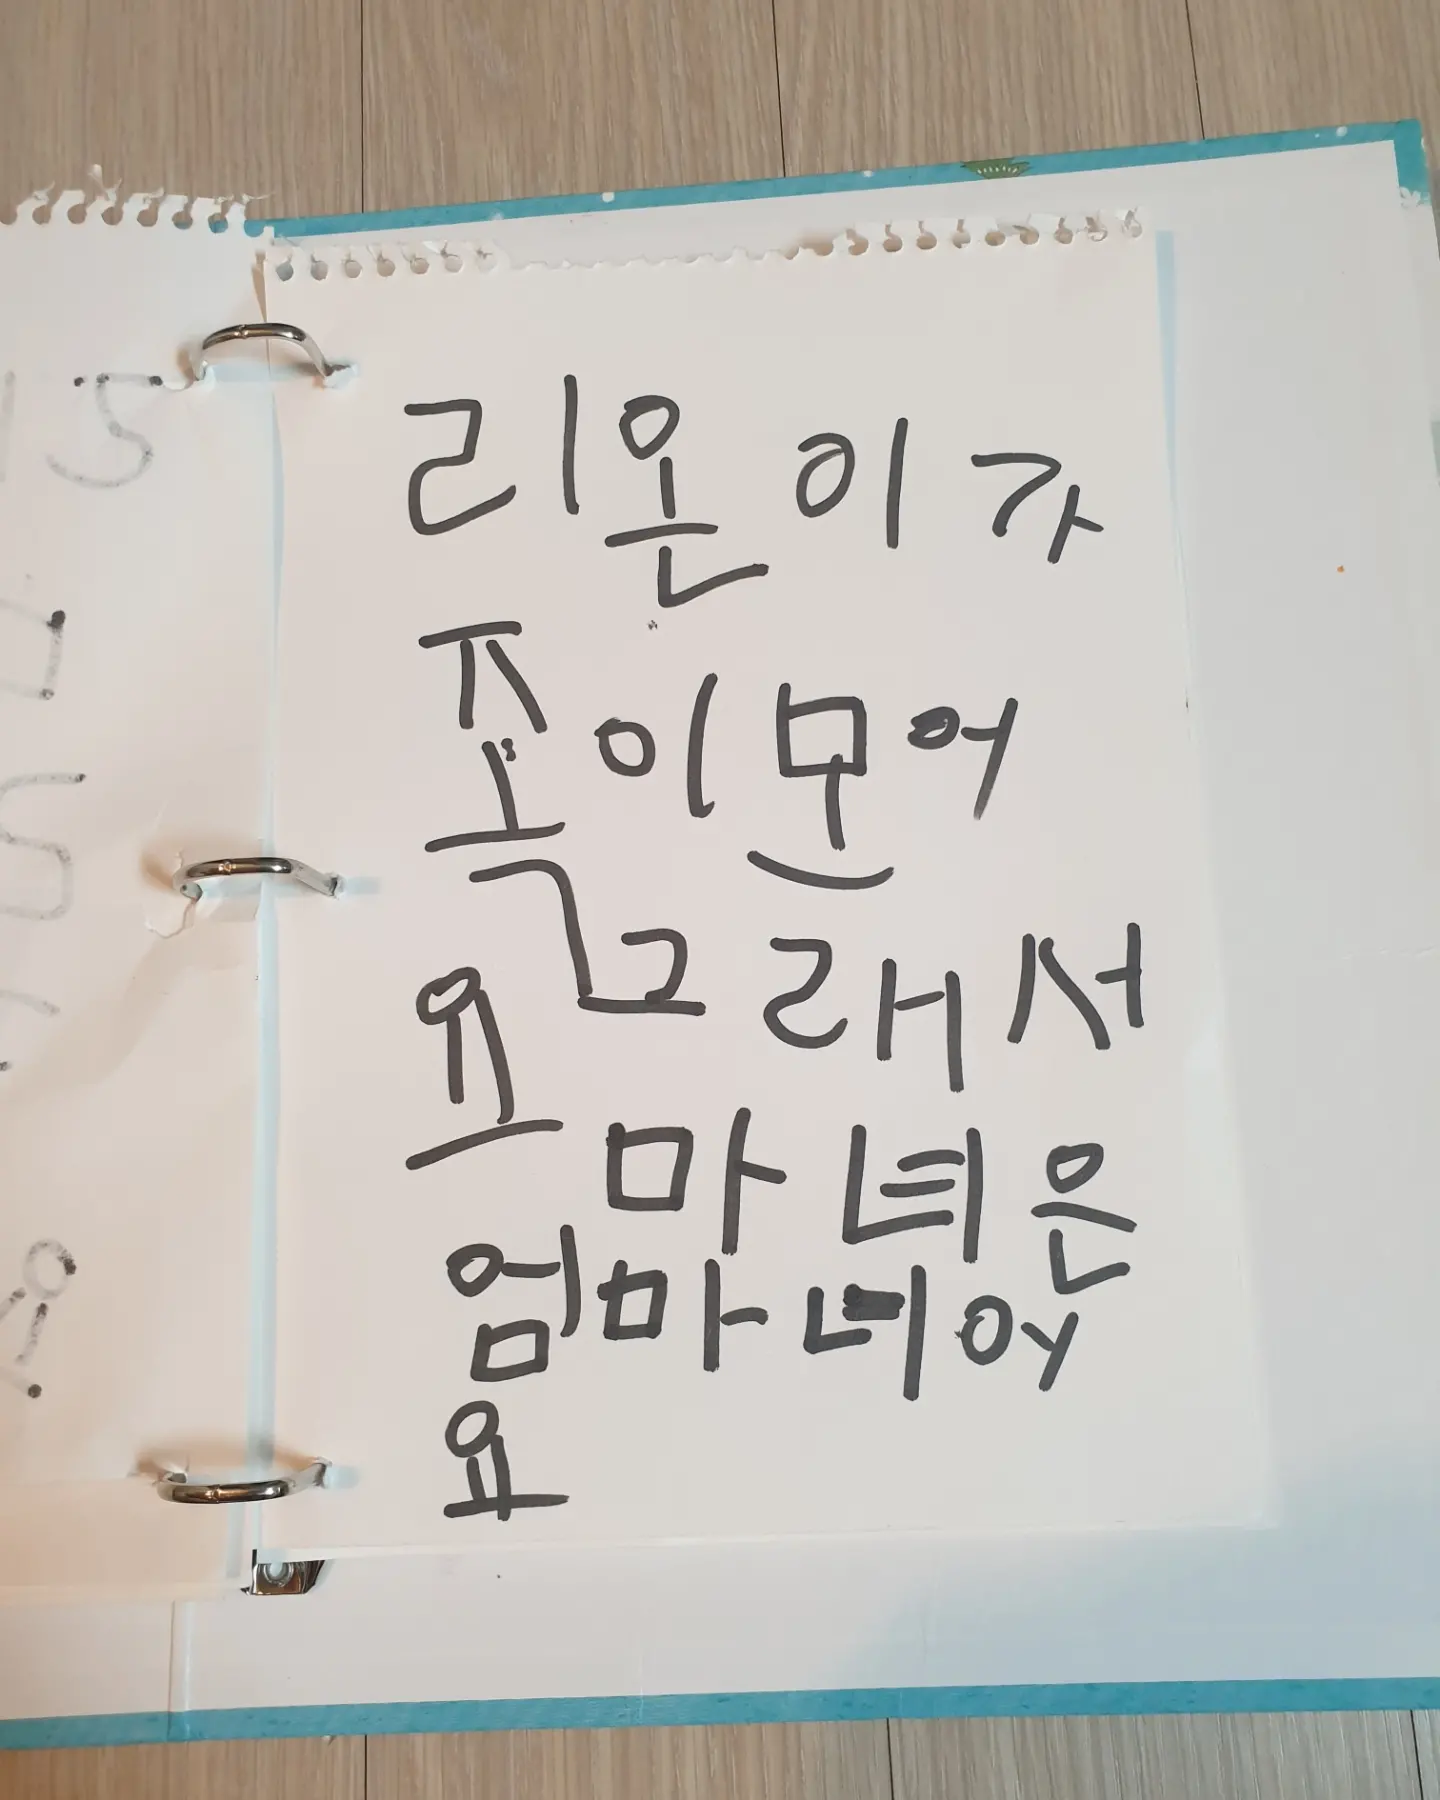 리온이가
족이모어
요그래서
마녀은
엄마녀어
요